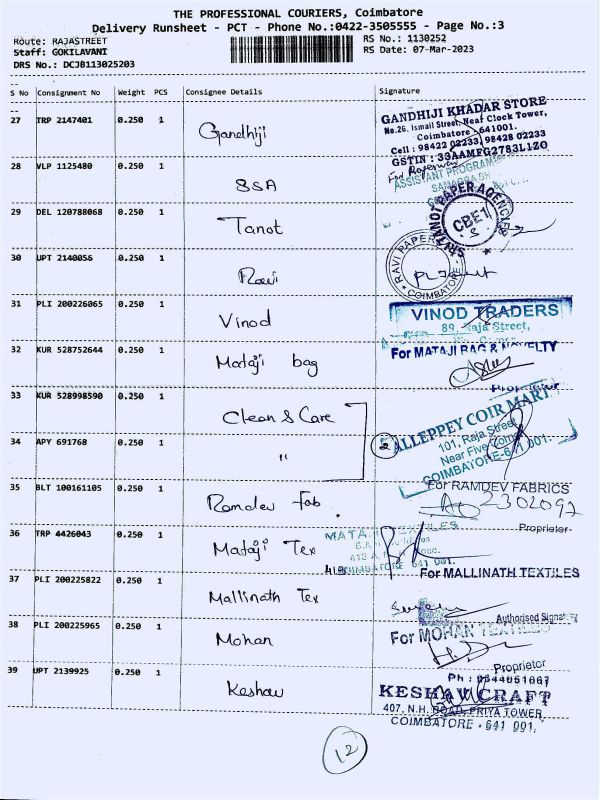 THE PROFESSIONAL COURIERS, Coimbatore
Delivery Runsheet - PCT - Phone No.:0422-3505555 - Page No.:3
Route: RAJASTREET
Staff: GOKILAVANI
DRS No.: DCJB113025203
RS No.: 1130252
RS Date: 07-Mar-2023
S No Consignment No Weight PCS Consignee Details Signature
27 TRP 2147401 0.250 1 Gandhiji
GANDHIJI KHADAR STORE
No.26, Ismail Street, Near Clock Tower,
Coimbatore - 641001.
Cell : 98422 02233, 98428 02233
GSTIN : 33AAMFG2783L1ZO
28 VLP 1125480 0.250 1 SSA
ASSISTANT PROGRAM
29 DEL 120788068 0.250 1 Tanot
SRI TANOT PAPER AGENCIES
CBE1
30 UPT 2140056 0.250 1 Ravi
RAVI PAPER
COIMBATORE
31 PLI 200226065 0.250 1 Vinod
VINOD TRADERS
89, Raja Street,
32 KUR 528752644 0.250 1 Mataji bag
For MATAJI BAG & NOVELTY
Proprietor
33 KUR 528998590 0.250 1 Clean & Care
34 APY 691768 0.250 1 "
2
ALLEPPEY COIR MART
101, Raja Street
Near Five Corner
COIMBATORE-641 001.
35 BLT 100161105 0.250 1 Ramdev Fab.
For RAMDEV FABRICS
Proprietor
36 TRP 4426043 0.250 1 Mataji Tex
MATAJI TEXTILES
COIMBATORE 641 001.
37 PLI 200225822 0.250 1 Mallinath Tex
For MALLINATH TEXTILES
Authorised Signat
38 PLI 200225965 0.250 1 Mohan
For MOHAN TEXTILES
Proprietor
39 UPT 2139925 0.250 1 Keshav
KESHAW CRAFT
407, N.H. ROAD, PRIYA TOWER
COIMBATORE - 641 001.
12